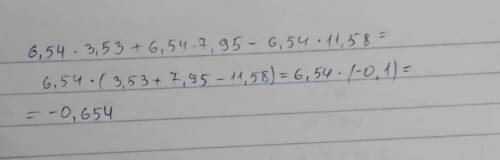 6,54 · 3,53 + 6,54 · 7,95 - 6,54 · 11,58 =
6,54 · (3,53 + 7,95 - 11,58) = 6,54 · (-0,1) =
= -0,654